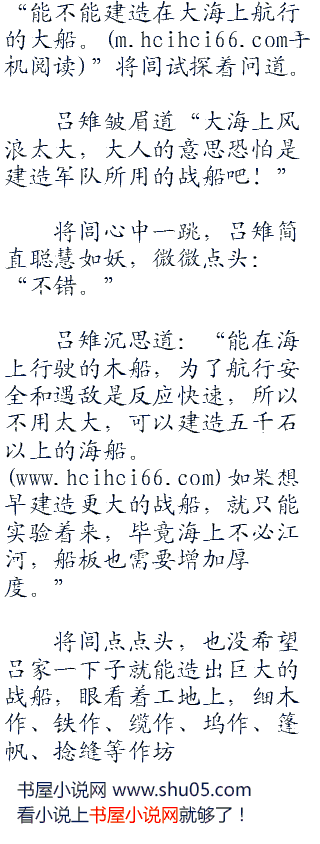 “能不能建造在大海上航行
的大船。(m.hcihci66.com手
机阅读)”将闾试探着问道。
吕雉皱眉道“大海上风
浪太大，大人的意思恐怕是
建造军队所用的战船吧！”
将闾心中一跳，吕雉简
直聪慧如妖，微微点头：
“不错。”
吕雉沉思道：“能在海
上行驶的木船，为了航行安
全和遇敌是反应快速，所以
不用太大，可以建造五千石
以上的海船。
(www.hcihci66.com)如果想
早建造更大的战船，就只能
实验着来，毕竟海上不必江
河，船板也需要增加厚
度。”
将闾点点头，也没希望
吕家一下子就能造出巨大的
战船，眼看着工地上，细木
作、铁作、缆作、坞作、篷
帆、捻缝等作坊
书屋小说网 www.shu05.com
看小说上书屋小说网就够了！